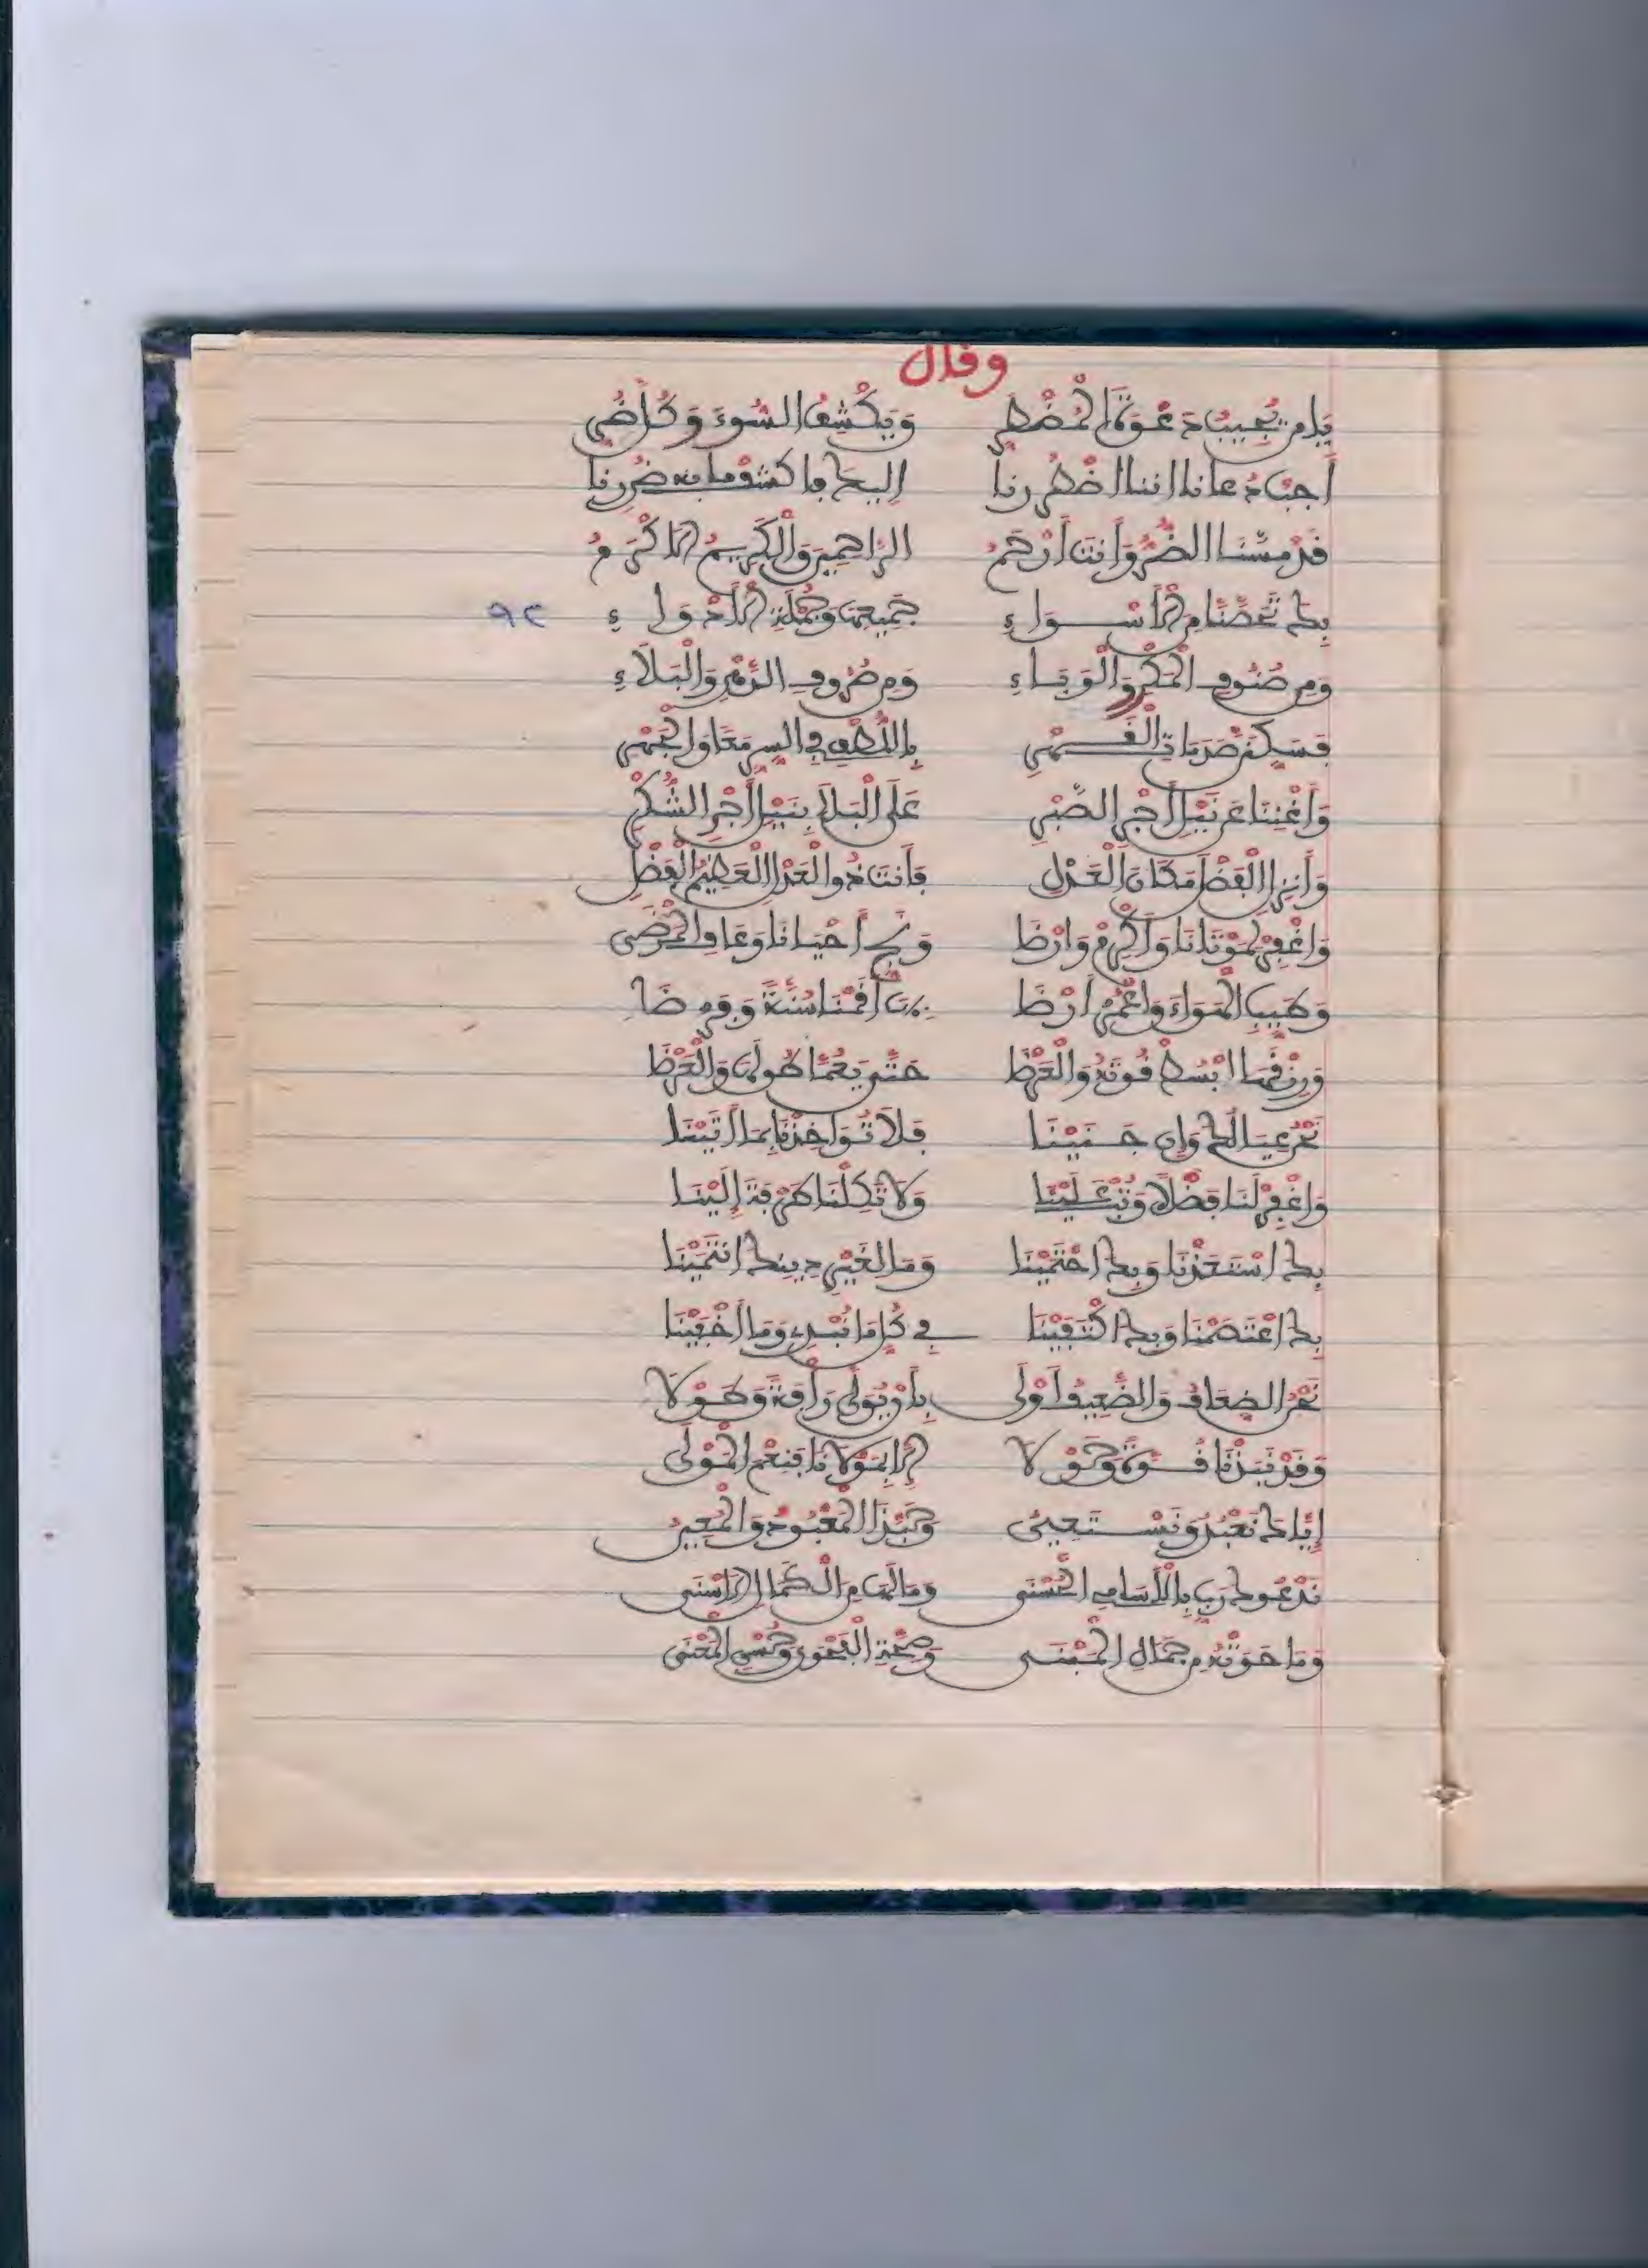 وقال
يَا من يُجِيبُ دَعْوَةَ الْمُضْطر وَيَكْشِفُ السُّوءَ وَكُلَّ ضُر
أَجِبْ دُعانا اننا اضْطُررنا إليك فاكشف ما به ضُررنا
قَدْ مَسَّنَا الضُّرُّ وَأَنتَ أَرْحَمُ الرَّاحِمِينَ وَالْكَرِيمُ الأَكْرَمُ
بِكَ تَحَصَّنَّا مِنَ الأَسْوَاءِ جَمِيعِهَا وَجُمْلَةِ الأَدْوَاءِ
وَمِن صُنُوفِ الْمَكْرِ وَالْوَبَاءِ وَمِن صُرُوفِ الدَّهْرِ وَالْبَلاَءِ
فَسَكِّنْ صَدَمَاتِ الْقَهْرِ بِاللُّطْفِ فِي السِّرِ مَعًا وَالْجَهْرِ
وَأَغْنِنَا عَن نَيْلِ أَجْرِ الصَّبْرِ عَلَى الْبَلاَ بِنَيْلِ أَجْرِ الشُّكْرِ
وَأَنزِلِ الْفَضْلَ مَكَانَ الْعَدْلِ فَأَنتَ ذُو الْعَدْلِ الْعَظِيمُ الْفَضْلِ
وَاغْفِرْ لِمَوْتَانَا وَأَكْرِمْ وَارْضَا وَنَجِّ أَحْيَانَا وَعَافِ الْمَرْضَى
وَطَيِّبِ الْهَوَاءَ وَاعْمُرْ أَرْضَا بِهَا أَقَمْنَا سُنَّةً وَفَرْضَا
وَرِزْقَهَا ابْسُطْ قُوتَهُ وَالْعَرْضَا حَتَّى يَعُمَّ طُولَهَا وَالْعَرْضَا
نَحْنُ عِيَالُكَ وَإِن جَنَيْنَا فَلاَ تُوَاخِذْنَا بِمَا أَتَيْنَا
وَاغْفِرْ لَنَا فَضْلاً وَتُبْ عَلَيْنَا وَلاَ تَكِلْنَا طَرْفَةً إِلَيْنَا
بِكَ اسْتَعَذْنَا وَبِكَ احْتَمَيْنَا وَمَا لِغَيْرِ دِينِكَ انتَمَيْنَا
بِكَ اعْتَصَمْنَا وَبِكَ اكْتَفَيْنَا فِي كُلِّ مَا نُبْدِي وَمَا أَخْفَيْنَا
نَحْنُ الضِعَافُ وَالضَّعِيفُ أَوْلَى بِأَن يُوَلَّى رَأْفَةً وَطَوْلاَ
وَقَدْ نَبَذْنَا قُوَّةً وَحَوْلاَ إِلاَّ بِمَوْلاَنَا فَنِعْمَ الْمَوْلَى
إِيَّاكَ نَعْبُدُ وَنَسْتَعِينُ وَحَبَّذَا الْمَعْبُودُ وَالْمُعِينُ
نَدْعُوكَ رَبِّ بِالأَسَامِي الْحُسْنَى وَمَا لَهَا مِنَ الْكَمَالِ الأَسْنَى
وَمَا حَوَتْهُ مِن جَمَالِ الْمَبْنَى وَصِحَّةِ الْفَحْوَى وَحُسْنِ الْمَعْنَى